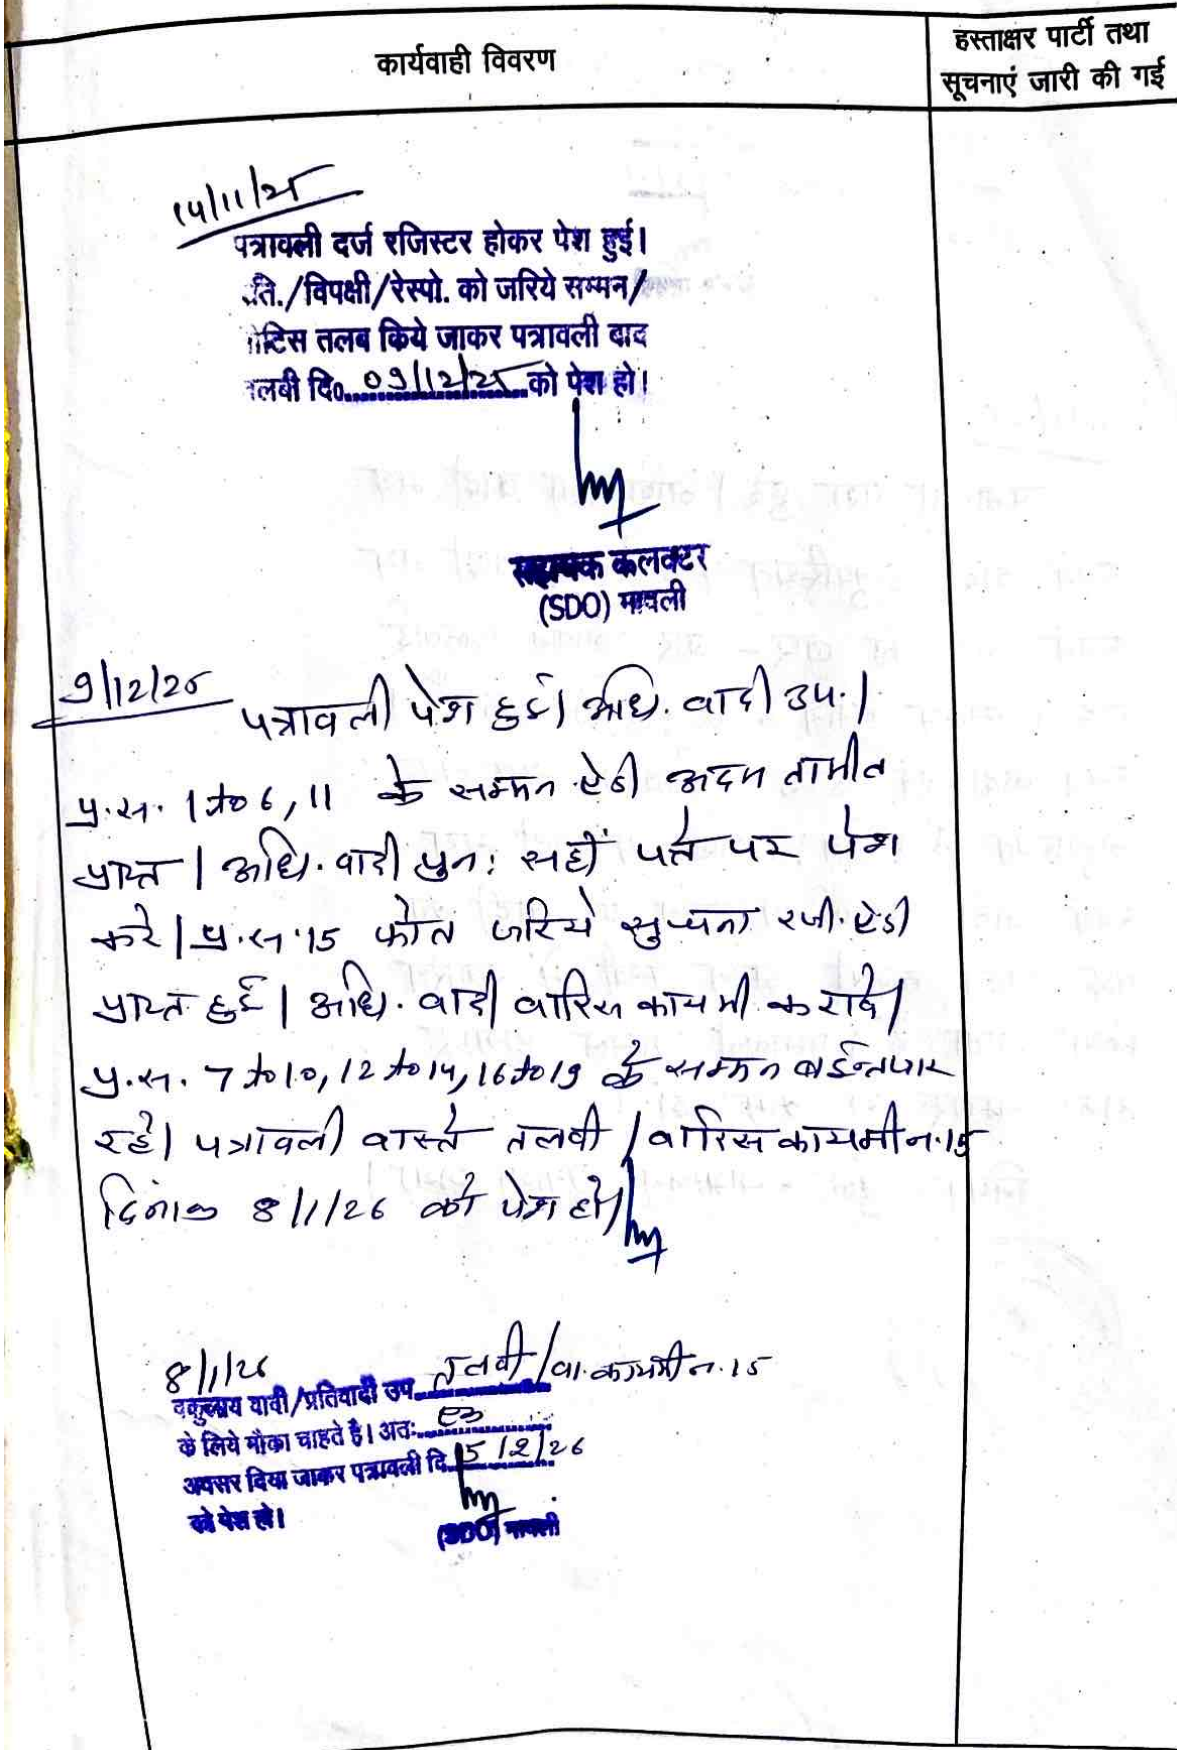 कार्यवाही विवरण
हस्ताक्षर पार्टी तथा
सूचनाएं जारी की गई
14/11/25
पत्रावली दर्ज रजिस्टर होकर पेश हुई।
ति./विपक्षी/रेस्पो. को जरिये सम्मन/
टिस तलब किये जाकर पत्रावली बाद
लबी दि० 09/12/25 को पेश हो।
सहायक कलक्टर
(SDO) मावली
9/12/25
पत्रावली पेश हुई। अधि. वादी उप.।
प्र.स. 1 to 6, 11 के सम्मन ऐडी अदम तामील
प्राप्त। अधि. वादी पुन: सही पते पर पेश
करे। प्र.स. 15 फोत जरिये सुचना रजी. ऐडी
प्राप्त हुई। अधि. वादी वारिस कायमी करावे।
प्र.स. 7 to 10, 12 to 14, 16 to 19 के सम्मन
रहे। पत्रावली वास्ते तलबी / वारिस कायमी न. 15
दिनांक 8/1/26 को पेश हो।
8/1/26
वकुलाय वादी/प्रतिवादी उप. तलबी/वा. कायमी न. 15
के लिये मौका चाहते है। अतः
अवसर दिया जाकर पत्रावली दि. 5/2/26
को पेश हो।
(SDO) मावली